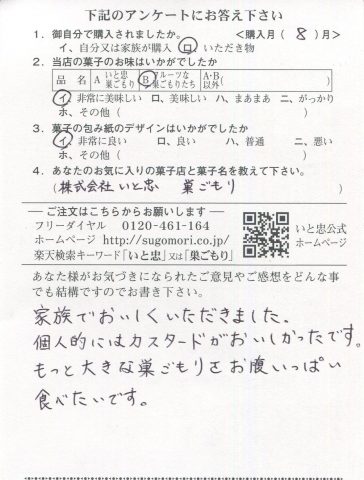 下記のアンケートにお答え下さい
1. 御自分で購入されましたか。 <購入月( 8 )月>
イ、自分又は家族が購入 ロ、いただき物
2. 当店の菓子のお味はいかがでしたか
品 名 A いと忠巣ごもり B フルーツな巣ごもりたち A・B以外( )
イ、非常に美味しい ロ、美味しい ハ、まあまあ ニ、がっかり
ホ、その他( )
3. 菓子の包み紙のデザインはいかがでしたか
イ、非常に良い ロ、良い ハ、普通 ニ、悪い
ホ、その他( )
4. あなたのお気に入りの菓子店と菓子名を教えて下さい。
(株式会社いと忠 巣ごもり )
ご注文はこちらからお願いします
フリーダイヤル 0120-461-164
ホームページ http://sugomori.co.jp/
楽天検索キーワード「いと忠」又は「巣ごもり」
いと忠公式
ホームページ
あなた様がお気づきになられたご意見やご感想をどんな事
でも結構ですのでお書き下さい。
家族でおいしくいただきました。
個人的にはカスタードがおいしかったです。
もっと大きな巣ごもりをお腹いっぱい
食べたいです。